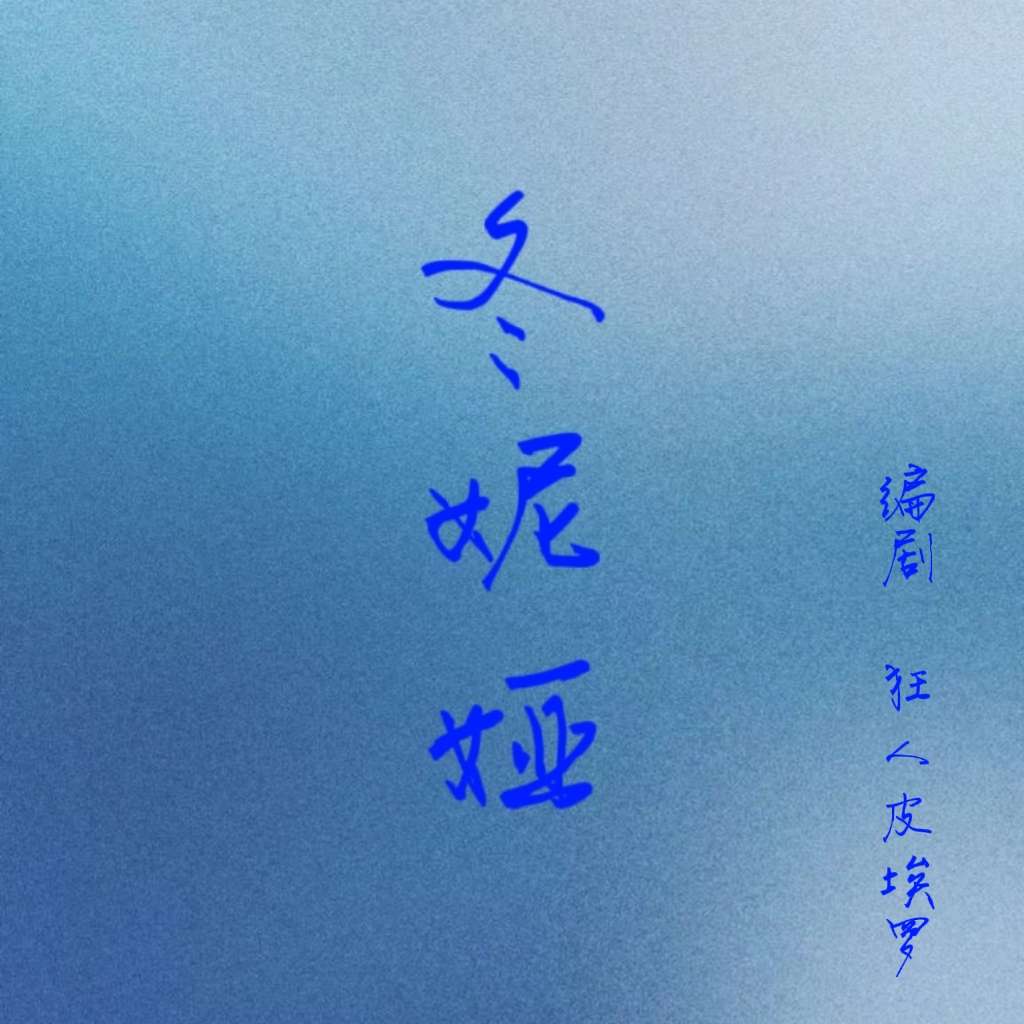 冬妮娅
编剧 狂人皮埃罗